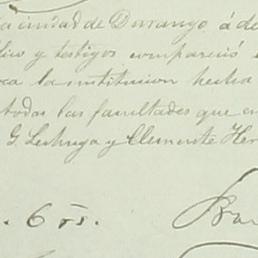 a ciudad de Durango á de
lico y testigos compareció
oca la institucion hecha
todas las facultades que en
G. Lechuga y Clemente Her
. 6 rs.